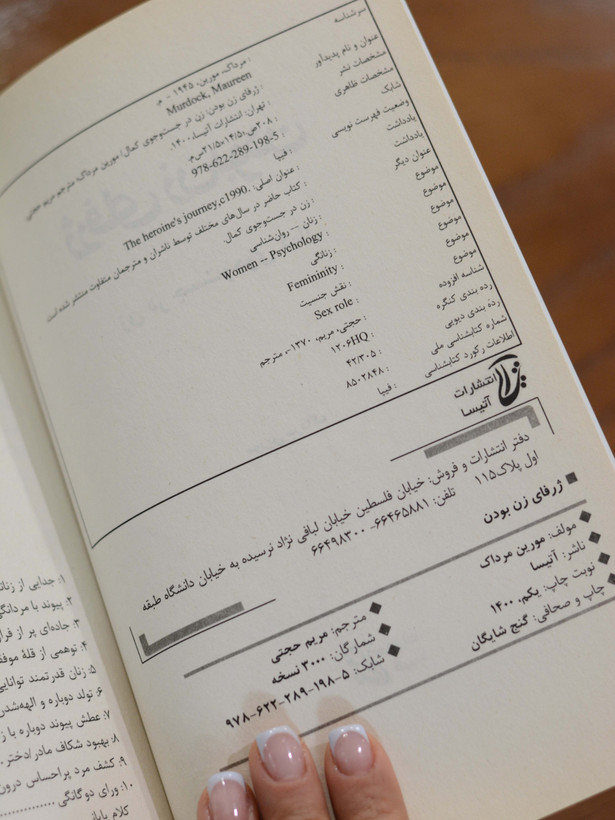 سرشناسه : مرداک، مورین، ۱۹۴۵ - م.
Murdock, Maureen
عنوان و نام پدیدآور : ژرفای زن بودن: زن در جست‌وجوی کمال/ مورین مرداک؛ مترجم مریم حجتی
مشخصات نشر : تهران: انتشارات آتیسا، ۱۴۰۰.
مشخصات ظاهری : ۲۰۸ص.؛ ۱۴/۵×۲۱/۵س‌م.
شابک : 978-622-289-198-5
وضعیت فهرست نویسی : فیپا
یادداشت : عنوان اصلی: The heroine's journey,c1990.
یادداشت : کتاب حاضر در سال‌های مختلف توسط ناشران و مترجمان متفاوت منتشر شده است
عنوان دیگر : زن در جست‌وجوی کمال.
موضوع : زنان — روان‌شناسی
موضوع : Women -- Psychology
موضوع : زنانگی
موضوع : Femininity
موضوع : نقش جنسیت
موضوع : Sex role
شناسه افزوده : حجتی، مریم، ۱۳۷۰-، مترجم
رده بندی کنگره : ۱۲۰۶HQ
ردهٔ بندی دیویی : ۴۲/۳۰۵
شماره کتابشناسی ملی : ۸۵۰۲۸۴۸
اطلاعات رکورد کتابشناسی : فیپا
انتشارات
آتیسا
دفتر انتشارات و فروش: خیابان فلسطین خیابان لبافی نژاد نرسیده به خیابان دانشگاه طبقه
اول پلاک۱۱۵ تلفن: ۶۶۴۶۵۸۸۱- ۶۶۴۹۸۳۰۰
ژرفای زن بودن
مولف: مورین مرداک
مترجم: مریم حجتی
ناشر: آتیسا
شمارگان: ۳۰۰۰ نسخه
نوبت چاپ: یکم، ۱۴۰۰
شابک: ۵-۱۹۸-۲۸۹-۶۲۲-۹۷۸
چاپ و صحافی: گنج شایگان
۱. جدایی از
۲. پیوند با
۳. جاده‌ای پر از
۴. توهمی از قلهٔ
۵. زنان قدرتمند
۶. تولد دوباره و الهه‌شدن
۷. عطش پیوند دوباره با
۸. بهبود شکاف مادر/دختر
۹. کشف مرد پراحساس درون
۱۰. ورای دوگانگی
کلام